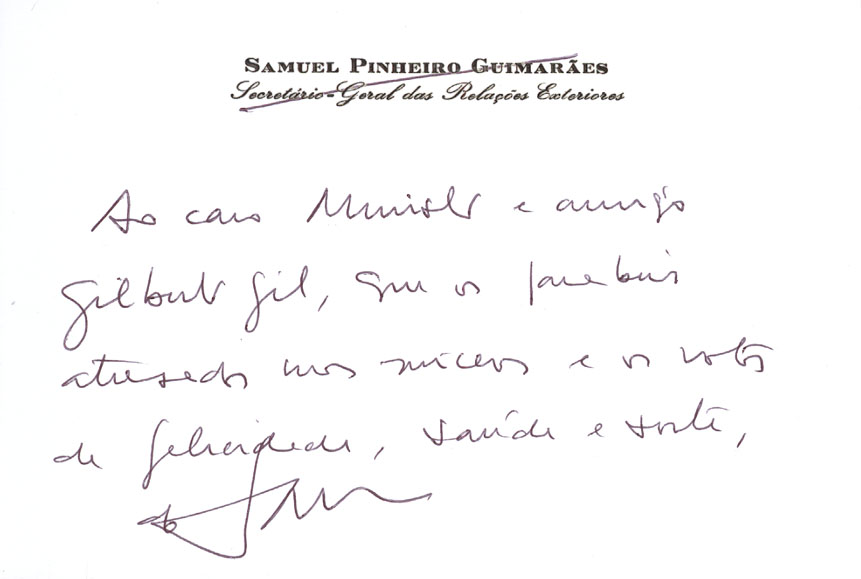 SAMUEL PINHEIRO GUIMARÃES
Secretário-Geral das Relações Exteriores
Ao caro Ministro e amigo
Gilberto Gil, com os parabéns
atrasados mas sinceros e os votos
de felicidade, saúde e sorte,
do